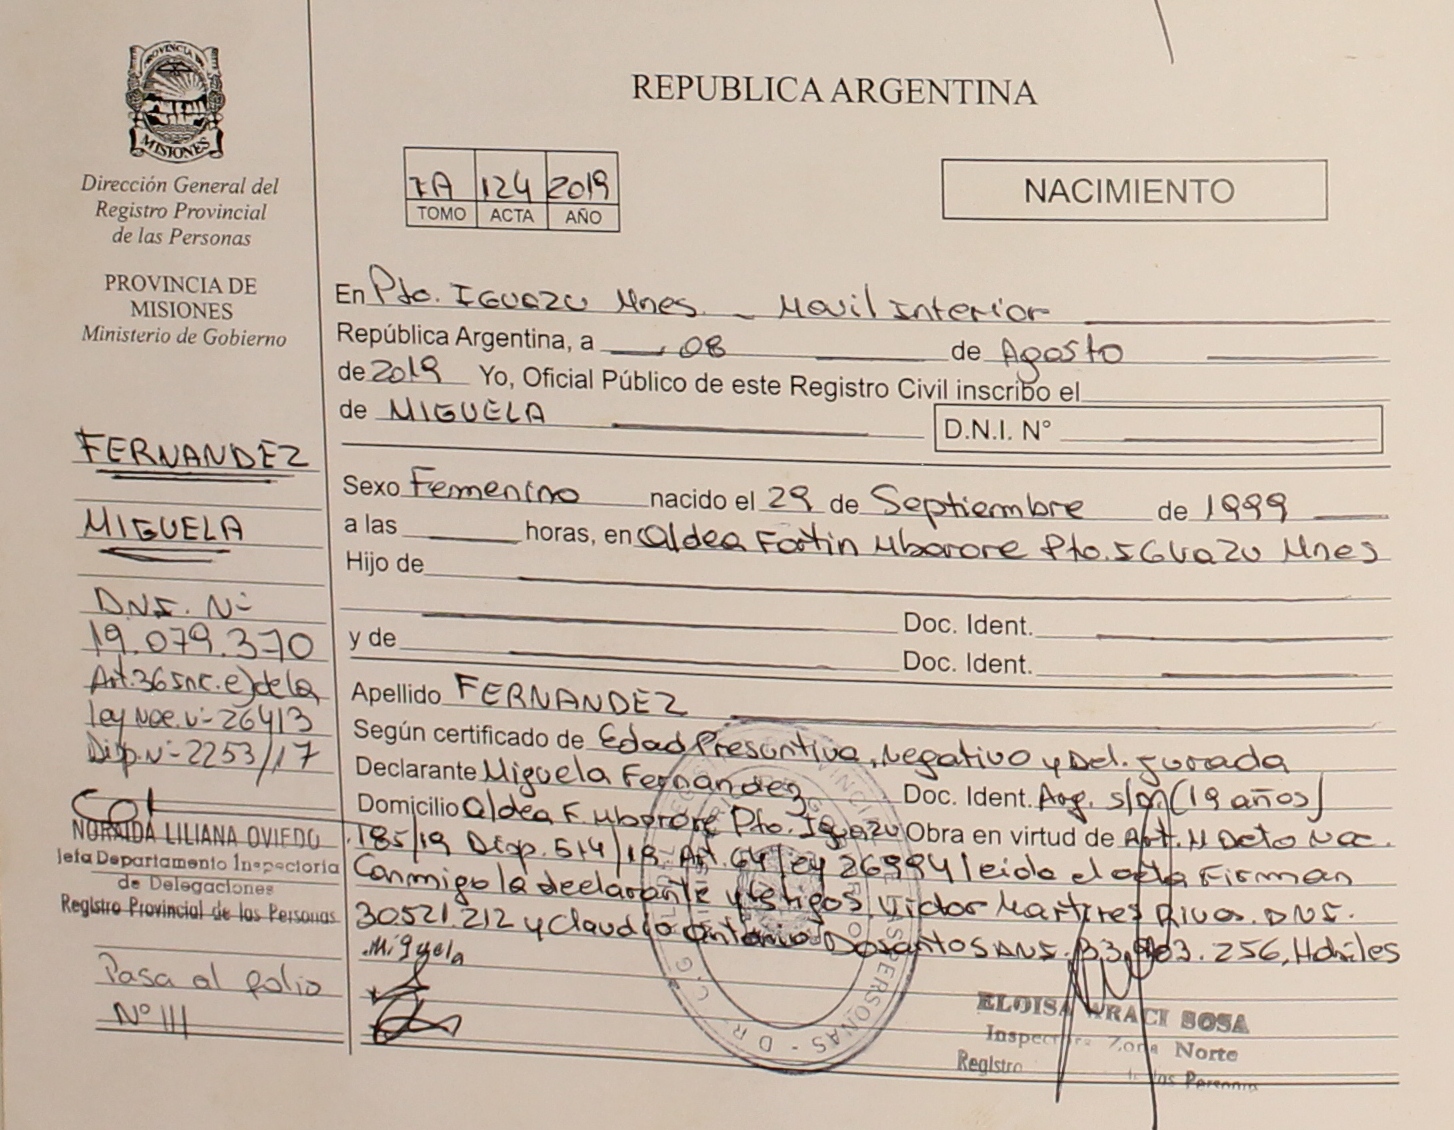 PROVINCIA DE
MISIONES
Dirección General del
Registro Provincial
de las Personas
PROVINCIA DE
MISIONES
Ministerio de Gobierno
FERNANDEZ
MIGUELA
DNI. Nº
19.079.370
Art.36 Inc.e) de la
ley Nac. Nº 26413
Disp. Nº 2253/17
NORAIDA LILIANA OVIEDO
Jefa Departamento Inspectoria
de Delegaciones
Registro Provincial de las Personas
Pasa al folio
Nº 111
REPUBLICA ARGENTINA
7A 124 2019
TOMO ACTA AÑO
NACIMIENTO
En Pto. IGUAZU Mnes. - Movil Interior
República Argentina, a 08 de Agosto
de 2019 Yo, Oficial Público de este Registro Civil inscribo el
de MIGUELA D.N.I. N°
Sexo Femenino nacido el 29 de Septiembre de 1999
a las horas, en Aldea Fortin Mborore Pto. IGUAZU Mnes
Hijo de
Doc. Ident.
y de
Doc. Ident.
Apellido FERNANDEZ
Según certificado de Edad Presuntiva, Negativo y Del. Jurada
Declarante Miguela Fernandez Doc. Ident. Arg. s/ (19 años)
Domicilio Aldea F. Mborore Pto. Iguazu Obra en virtud de Art. 11 Dcto Nac.
185/19 Disp. 514/18 Art. 64 ley 26994 leida el acta Firman
Conmigo la declarante y testigos Victor Martires Rivas. DNI.
30521.212 y Claudio Antonio Dosantos DNI. 33. .256, Habiles
Miguela
ELOISA ARACI SOSA
Inspectora Zona Norte
Registro de las Personas